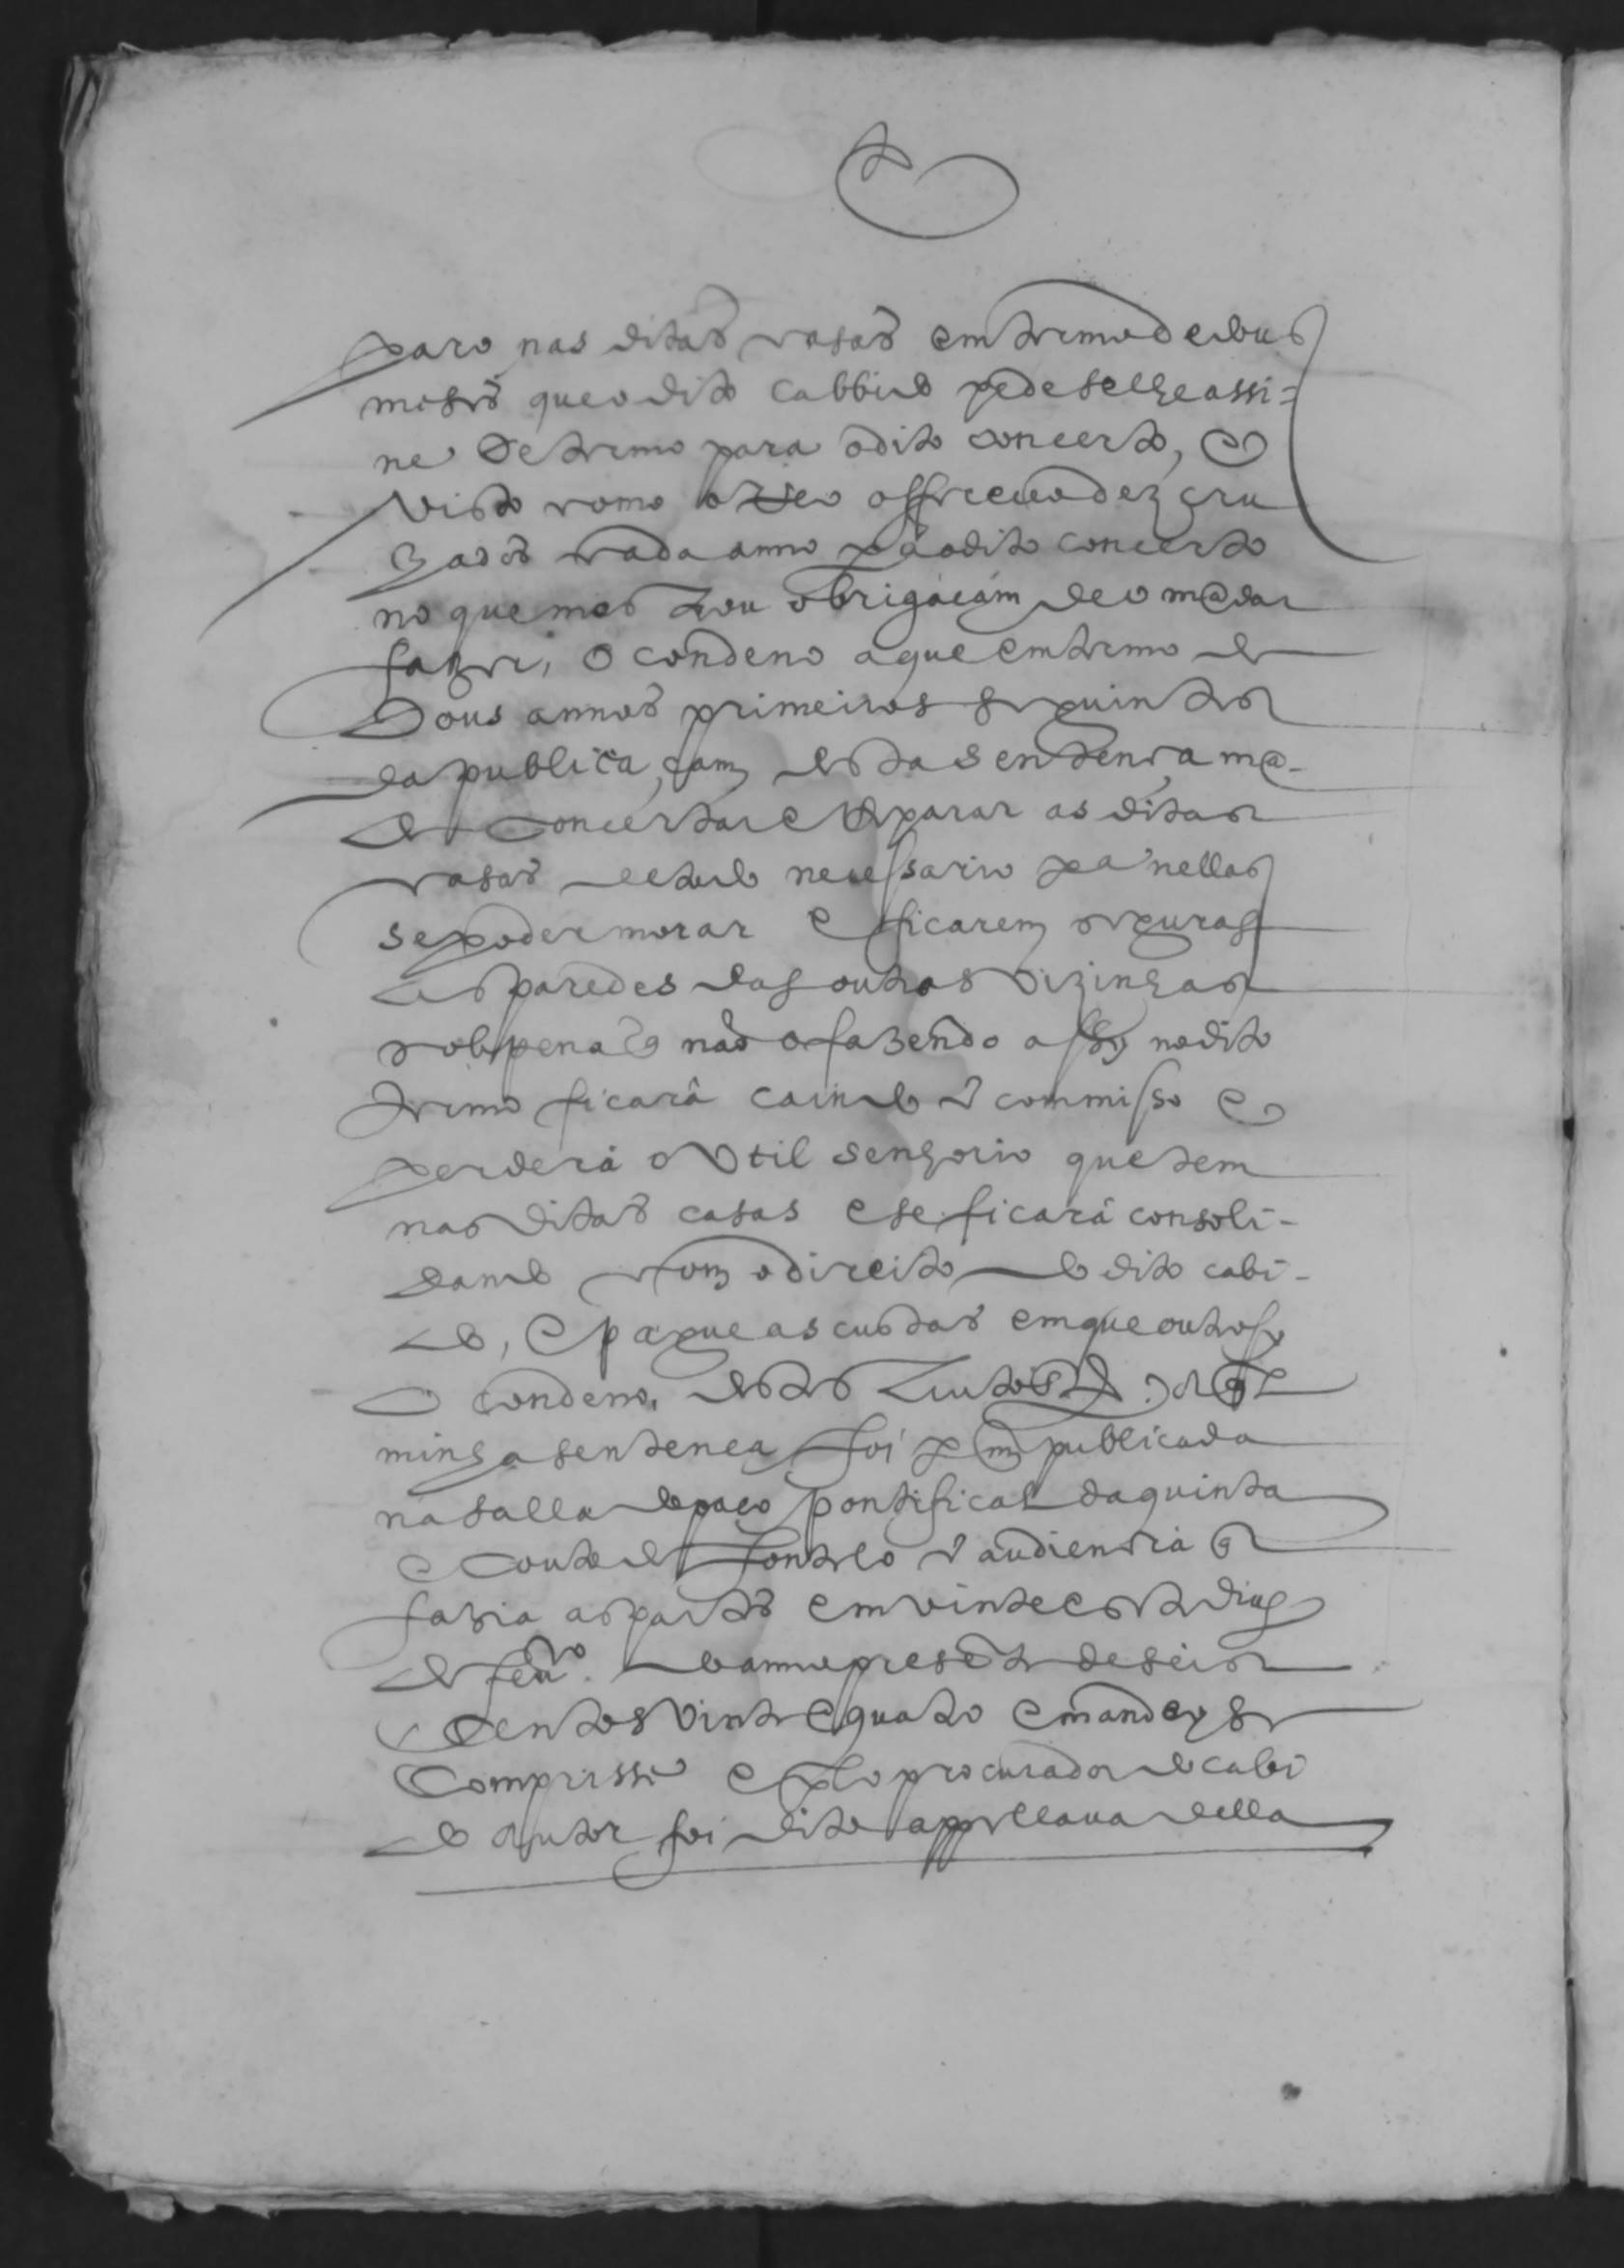 paro nas ditas casas em termo de dous
meses que o dito Cabbido pede se lhe assi=
ne de termo para o dito concerto, e
visto como o Reo offereceo dez cru
zados cada anno pa o dito concerto
no que mostrou obrigaçam de o mãdar
fazer, o condeno a que em termo de
Dous annos primeiros seguintes
da publicaçam desta sentença mã-
de concertar e reparar as ditas
casas de tudo necessario pa nellas
se poder morar e ficarem seguras
as paredes das outras vizinhas
sob pena q̃ não o fazendo assy no dito
termo ficará caindo ẽ commisso e
perderá o Vtil senhorio que tem
nas ditas casas e se ficará consoli-
dando com o direito do dito cabi-
do, e pague as custas em que outrosy
o condeno, destes Autos
minha sentença foi per mỹ publicada
na salla do paço pontifical da quinta
e Couto de Fontelo ẽ audiencia q̃
fazia as partes em vinte e sete dias
de feuro. do anno presẽte de seis
Centos vinte e quatro e mandey se
Comprisse e pelo procurador do cabi
do Autor foi dito appellaua della